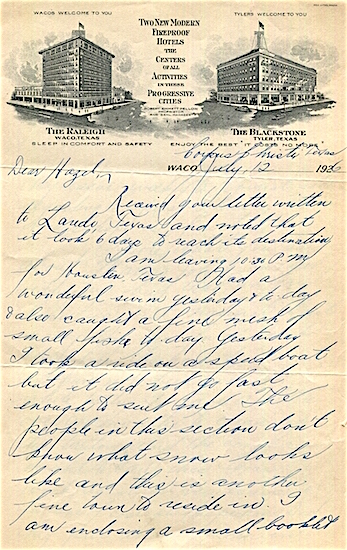 WACOS WELCOME TO YOU
TYLERS WELCOME TO YOU
TWO NEW MODERN
FIREPROOF
HOTELS
THE
CENTERS
OF ALL
ACTIVITIES
IN THESE
PROGRESSIVE
CITIES
THE RALEIGH
WACO, TEXAS
SLEEP IN COMFORT AND SAFETY
THE BLACKSTONE
TYLER, TEXAS
ENJOY THE BEST "IT COSTS NO MORE"
Corpus Christi Texas
WACO, July 12 1926
Dear Hazel,
Received your letter written
to Laredo, Texas and noted that
it took 6 days to reach its destination
I am leaving 10:30 P.M.
for Houston Texas Had a
wonderful swim yesterday & to day
& also caught a fine mesh of
small fish to day Yesterday
I took a ride on a speed boat
but it did not go fast
enough to suit me The
people in this section don't
know what snow looks
like and this is another
fine town to reside in. I
am enclosing a small booklet